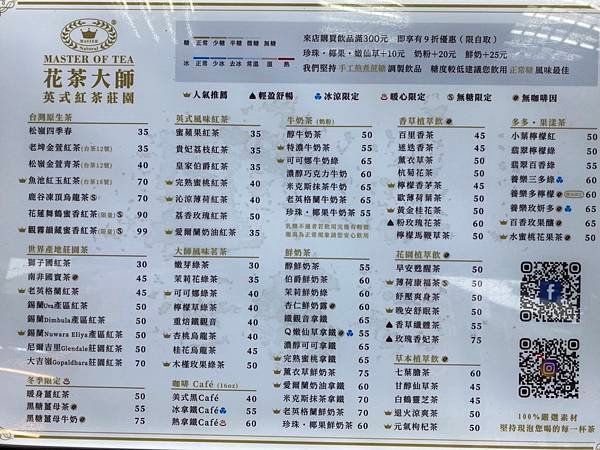 MASTER
Natural
MASTER OF TEA
花茶大師
英式紅茶莊園
糖 正常 少糖 半糖 微糖 無糖
冰 正常 少冰 去冰 常溫 溫 熱
來店購買飲品滿300元 即享有9折優惠(限自取)
珍珠、椰果、嫩仙草+10元 奶粉+20元 鮮奶+25元
我們堅持手工熬煮蔗糖調製飲品 糖度較低建議您飲用正常糖風味最佳
人氣推薦 輕盈舒暢 冰涼限定 暖心限定 無糖限定 無咖啡因
台灣原生茶
松嶺四季春 35
老埤金萱紅茶(台茶12號) 35
松嶺金萱青茶(台茶12號) 40
魚池紅玉紅茶(台茶18號) 70
鹿谷凍頂烏龍茶 70
花蓮舞鶴蜜香紅茶(限量) 90
觀霧韻蘊蜜香紅茶(限量) 99
世界產地莊園茶
獅子國紅茶 30
南非國寶茶 45
老英格蘭紅茶 35
錫蘭Uva產區紅茶 50
錫蘭Dimbula產區紅茶 50
錫蘭Nuwara Eliya產區紅茶 50
尼爾吉里Glendale莊園紅茶 50
大吉嶺Gopaldhara莊園紅茶 60
冬季限定
暖身薑紅茶 50
黑糖薑母茶 55
黑糖薑母牛奶 75
英式風味紅茶
蜜蘋果紅茶 35
貴妃荔枝紅茶 35
皇家伯爵紅茶 35
完熟蜜桃紅茶 40
沁涼薄荷紅茶 40
荔香玫瑰紅茶 50
愛爾蘭奶油紅茶 35
大師風味茗茶
嫩芽綠茶 30
茉莉花綠茶 35
可可娜綠茶 40
檸檬草綠茶 40
重焙鐵觀音 40
杏桃烏龍茶 45
桂花烏龍茶 45
木槿玫果綠茶 50
咖啡 Café (16oz)
美式黑Café 40
冰拿鐵Café 55
熱拿鐵Café 60
牛奶茶(奶粉)
醇牛奶茶 50
特濃牛奶茶 55
可可娜牛奶綠 65
濃醇巧克力牛奶 60
米克斯抹茶牛奶 65
老英格蘭牛奶茶 60
珍珠、椰果牛奶茶 55
鮮奶茶
醇鮮奶茶 55
伯爵鮮奶茶 60
茉莉鮮奶綠 60
杏仁鮮奶露 60
鐵觀音拿鐵 65
Q嫩仙草拿鐵 55
濃醇可可拿鐵 65
完熟蜜桃拿鐵 65
薰衣草鮮奶茶 65
愛爾蘭奶油拿鐵 60
米克斯抹茶拿鐵 70
老英格蘭鮮奶茶 60
珍珠、椰果鮮奶茶 60
香草植草飲
百里香茶 45
迷迭香茶 45
薰衣草茶 50
杭菊花茶 50
檸檬香茅茶 45
歐薄荷葉茶 50
黃金桂花茶 50
粉玫瑰花茶 60
檸檬馬鞭草茶 50
花園植草飲
早安甦醒茶 50
薄荷康福茶 50
紓壓爽身茶 50
晚安舒眠茶 50
香草纖體茶 55
玫瑰香妃茶 75
草本植草飲
七葉膽茶 60
甘醇仙草茶 45
白鶴靈芝茶 45
退火涼爽茶 50
元氣枸杞茶 50
多多、果漾茶
小葉檸檬紅 50
翡翠檸檬綠 50
翡翠百香綠 55
養樂三多綠 60
養樂多檸檬 60
養樂玫妍多 65
百香玫果釀 65
水蜜桃花果茶 60
100%嚴選素材
堅持現泡您喝的每一杯茶